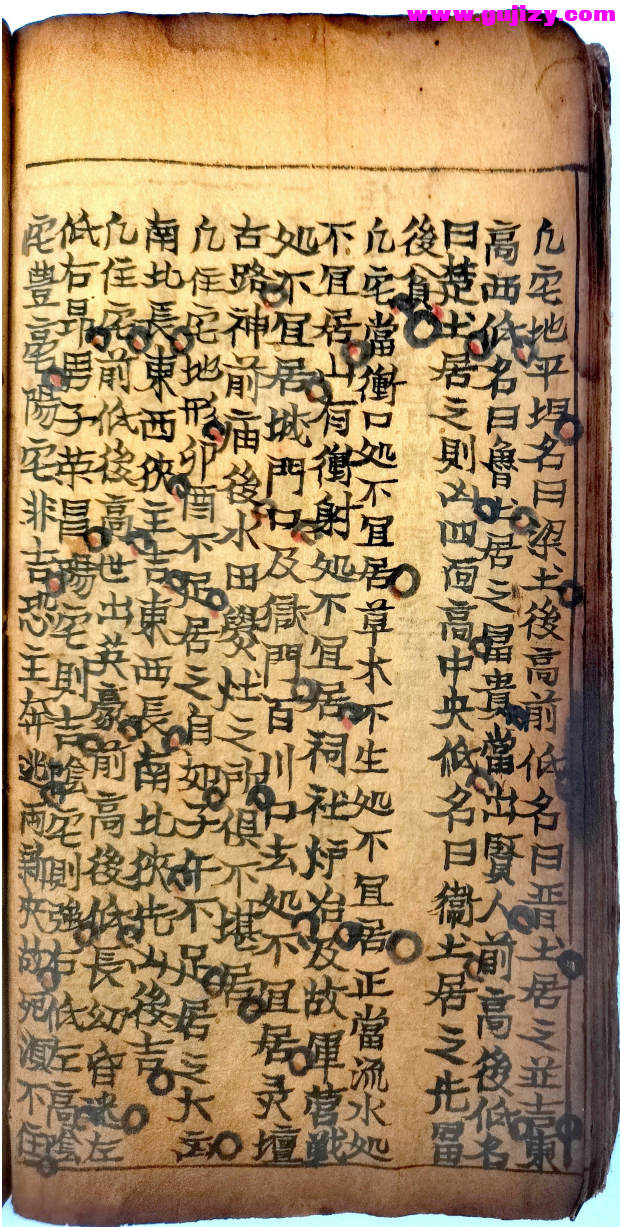 www.gujizy.com
凢宅地平坦名曰梁土後高前低名曰晋土居之並吉東
高西低名曰魯土居之畐貴當出賢人前高後低名
曰楚土居之則凶四面高中央低名曰衞土居之先畐
後貧
凢宅當衝口処不冝居草木不生処不冝居正當流水処
不冝居山有衝射処不冝居祠社炉冶及故軍营戦
処不冝居城門口及獄門百川口去処不冝居灵壇
古路神前庙後水田爨灶之所俱不堪居
凢住宅地形卯酉不足居之自如子午不足居之大凶
南北長東西狹主吉東西長南北狹先凶後吉
凢住宅前低後高世出英豪前高後低長幼昏迷左
低右昻男子荣昌陽宅則吉陰宅則強右低左高陰
宅豐亳陽宅非吉恐主奔逃両新夾故死湏不住